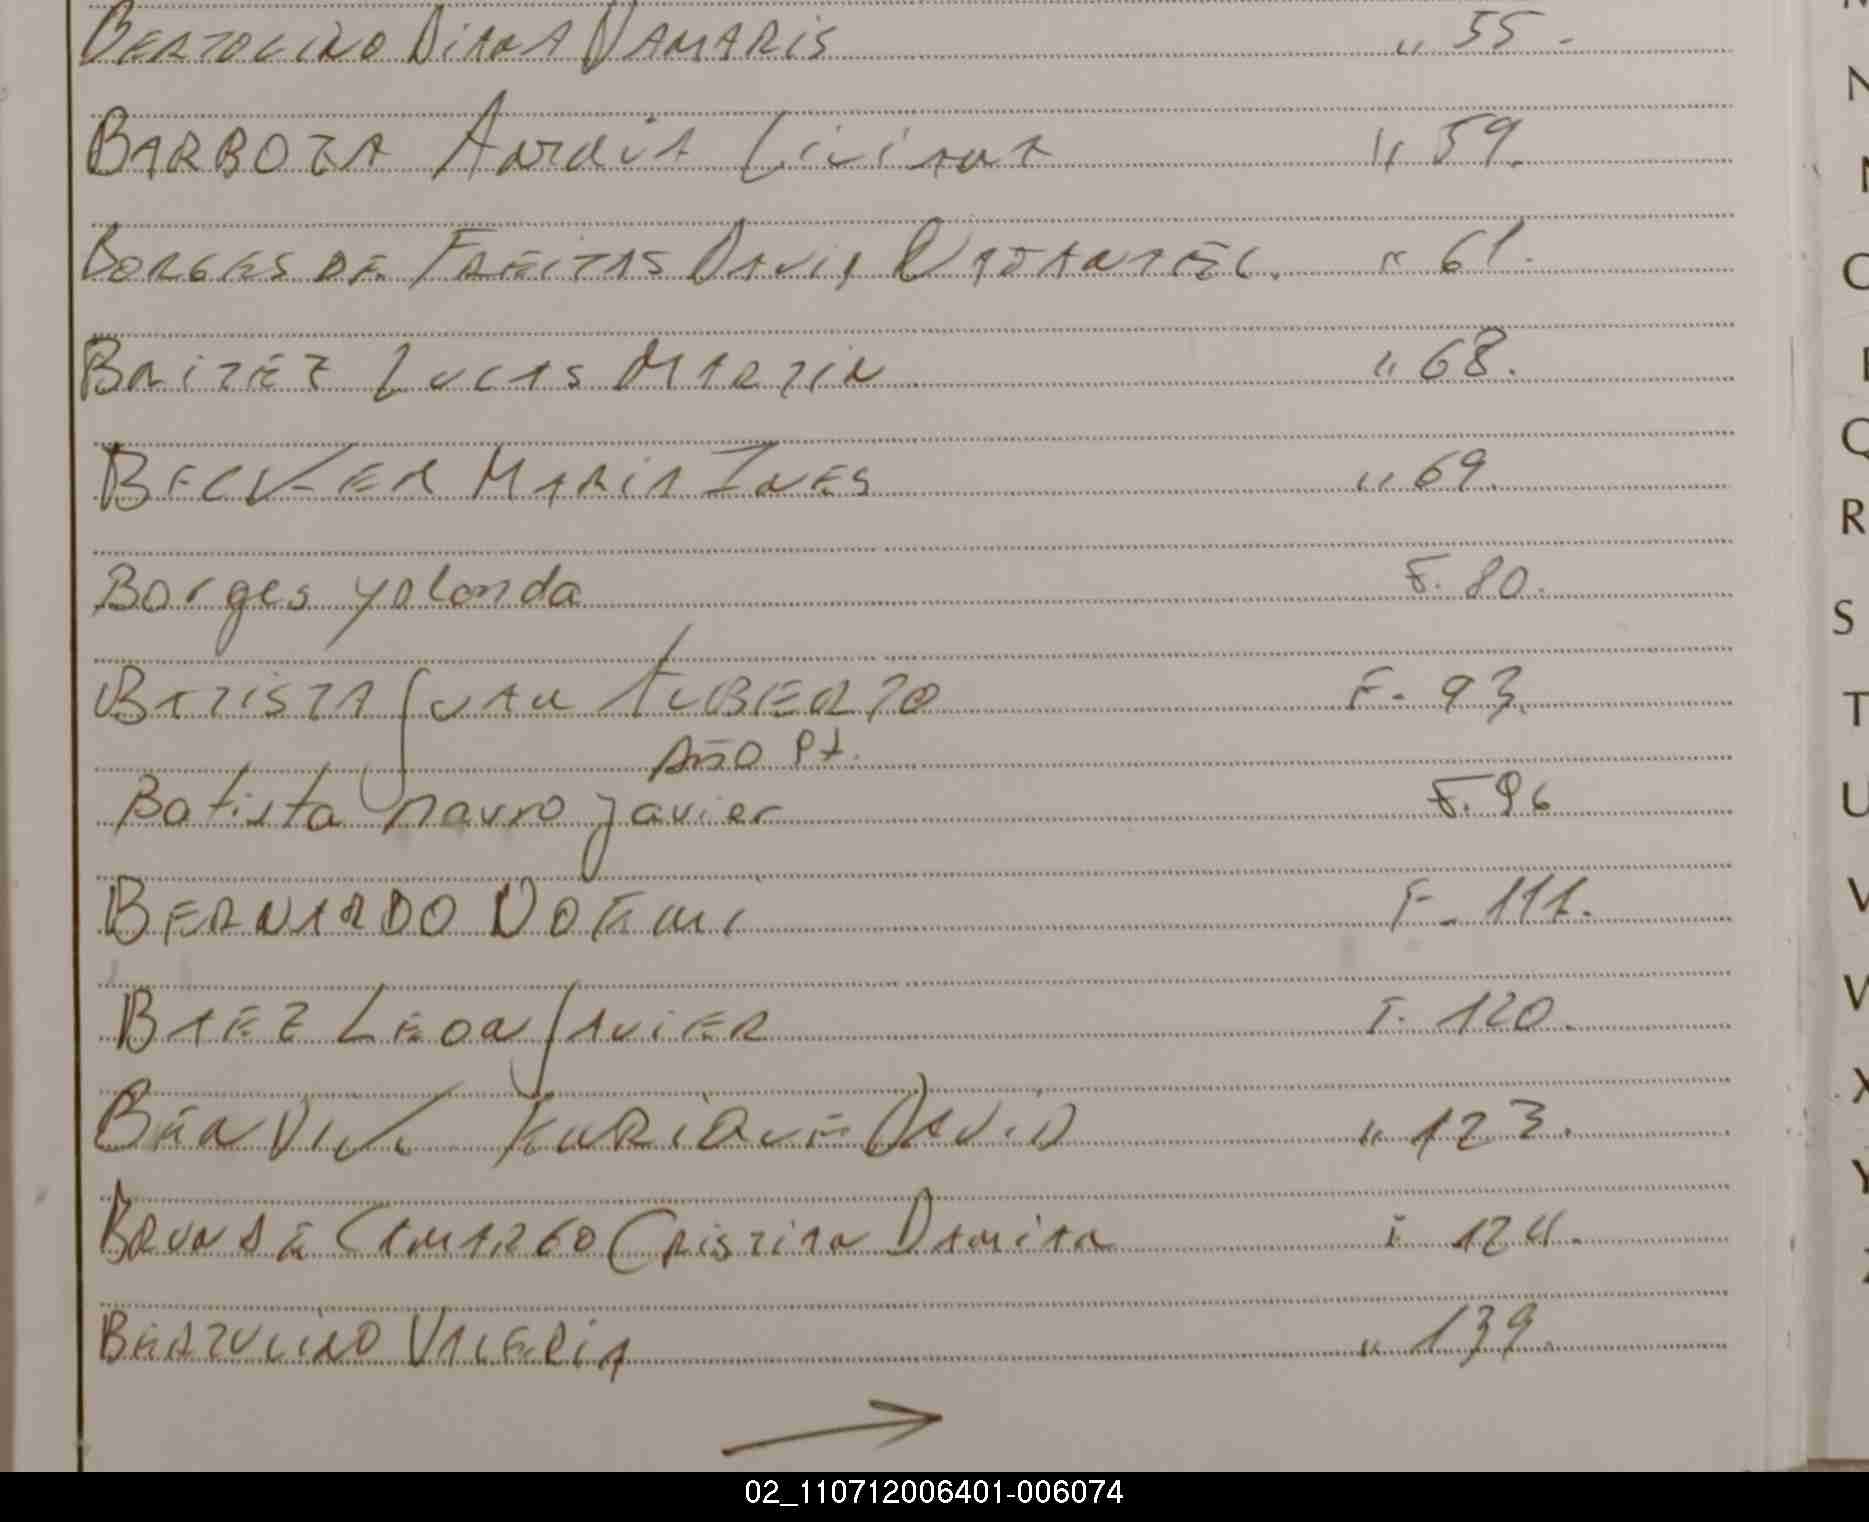 BERTOLINO DiANA DAMARIS " 55.
BARBOZA Analia Liliana " 59.
BORGES DE FREITAS DAVID NATANAEL. " 61.
BRITEZ LUCAS MARTIN " 68.
BECKER MARIA INES " 69.
Borges yolanda F. 80.
BATISTA JUAN ALBERTO F. 93.
AÑO
Batista mauro javier F. 96
BERNARDO NOEMI F. 111.
BAEZ LEON JAVIER F. 120.
ENRIQUE DAVID " 123.
BRUN DE CAMARGO CRISTINA DAMIAN " 124.
BERTULINO VALERIA " 139.
N
N
O
Q
R
S
T
U
V
X
Y
02_110712006401-006074